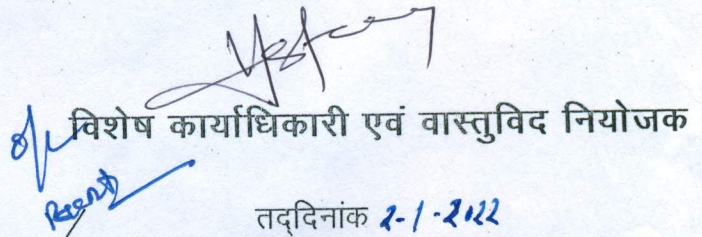 विशेष कार्याधिकारी एवं वास्तुविद नियोजक
तद्दिनांक 2-1-2022